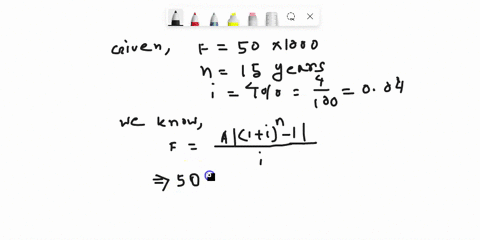 Given, F = 50 × 1000
n = 15 years
i = 4% = 4/100 = 0.04
We know,
F = A|(1+i)^n - 1| / i
⇒ 50